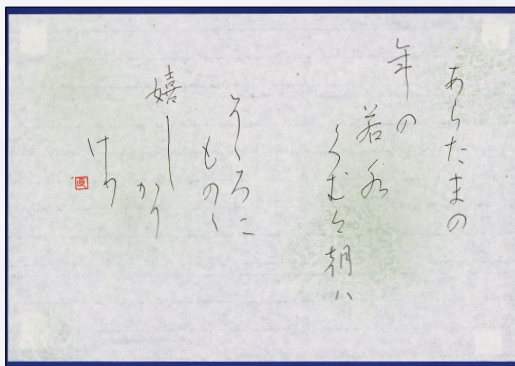 あらたまの
年の
若水
くむ今朝ハ
そゝろに
ものゝ
嬉し
かり
けり